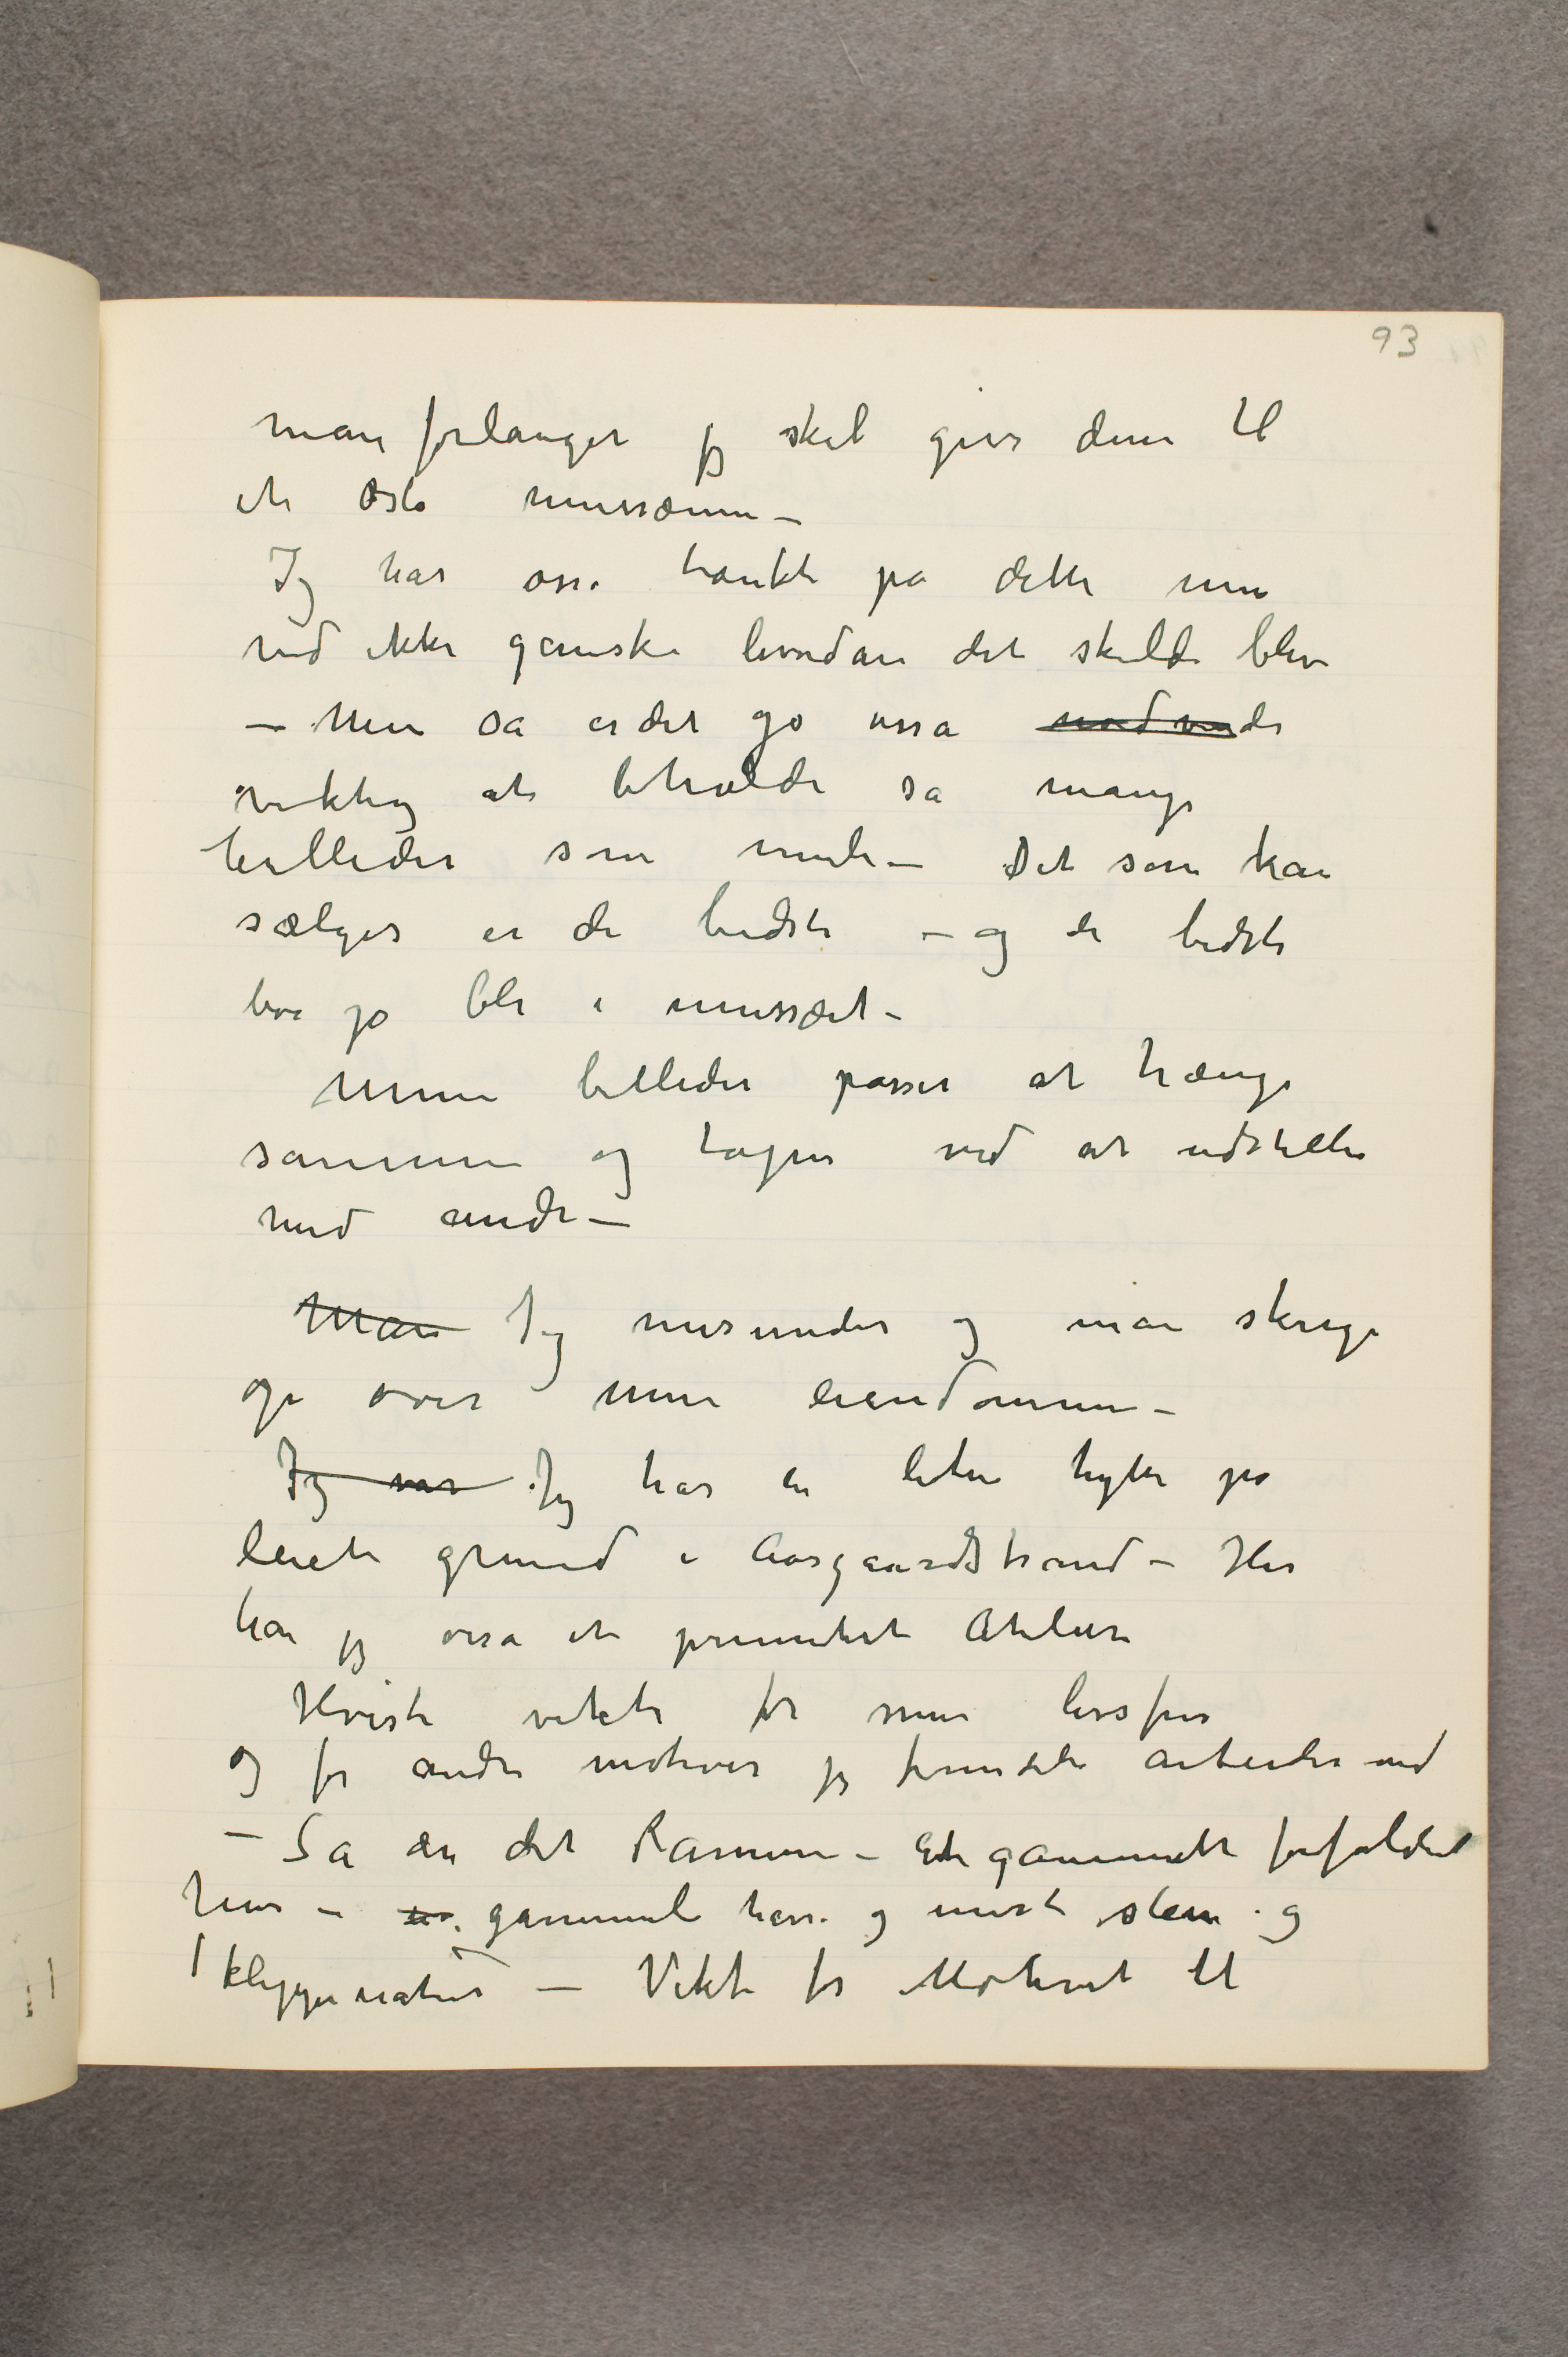 93
man forlanger jeg skal give dem til
et Oslo mussæum –
Jeg har osså tænkt på dette men
ved ikke ganske hvordan det skulde blive
– Men så er det jo osså nødvende
viktig at beholde så mange
billeder som mulig – Det som kan
sælges er de bedste – og de bedste
bør jo bli i mussæet –
Mine billeder passer at hænge
sammen og taper ved at udstilles
med andre –
Man Jeg misundes og man skriger
op over mine eiendommer –
Jeg var Jeg har en liten hytte på
leiet grund i Aasgaardstrand – Her
har jeg osså et primitivt Atelier
Høist viktig for min livsfrise
og for andre motiver jeg fremdeles arbeider med
– Så er det Ramme – Et gammelt forfaldent
hus – gammel have og mest sten og
klippenatur – Viktig for Motivet til